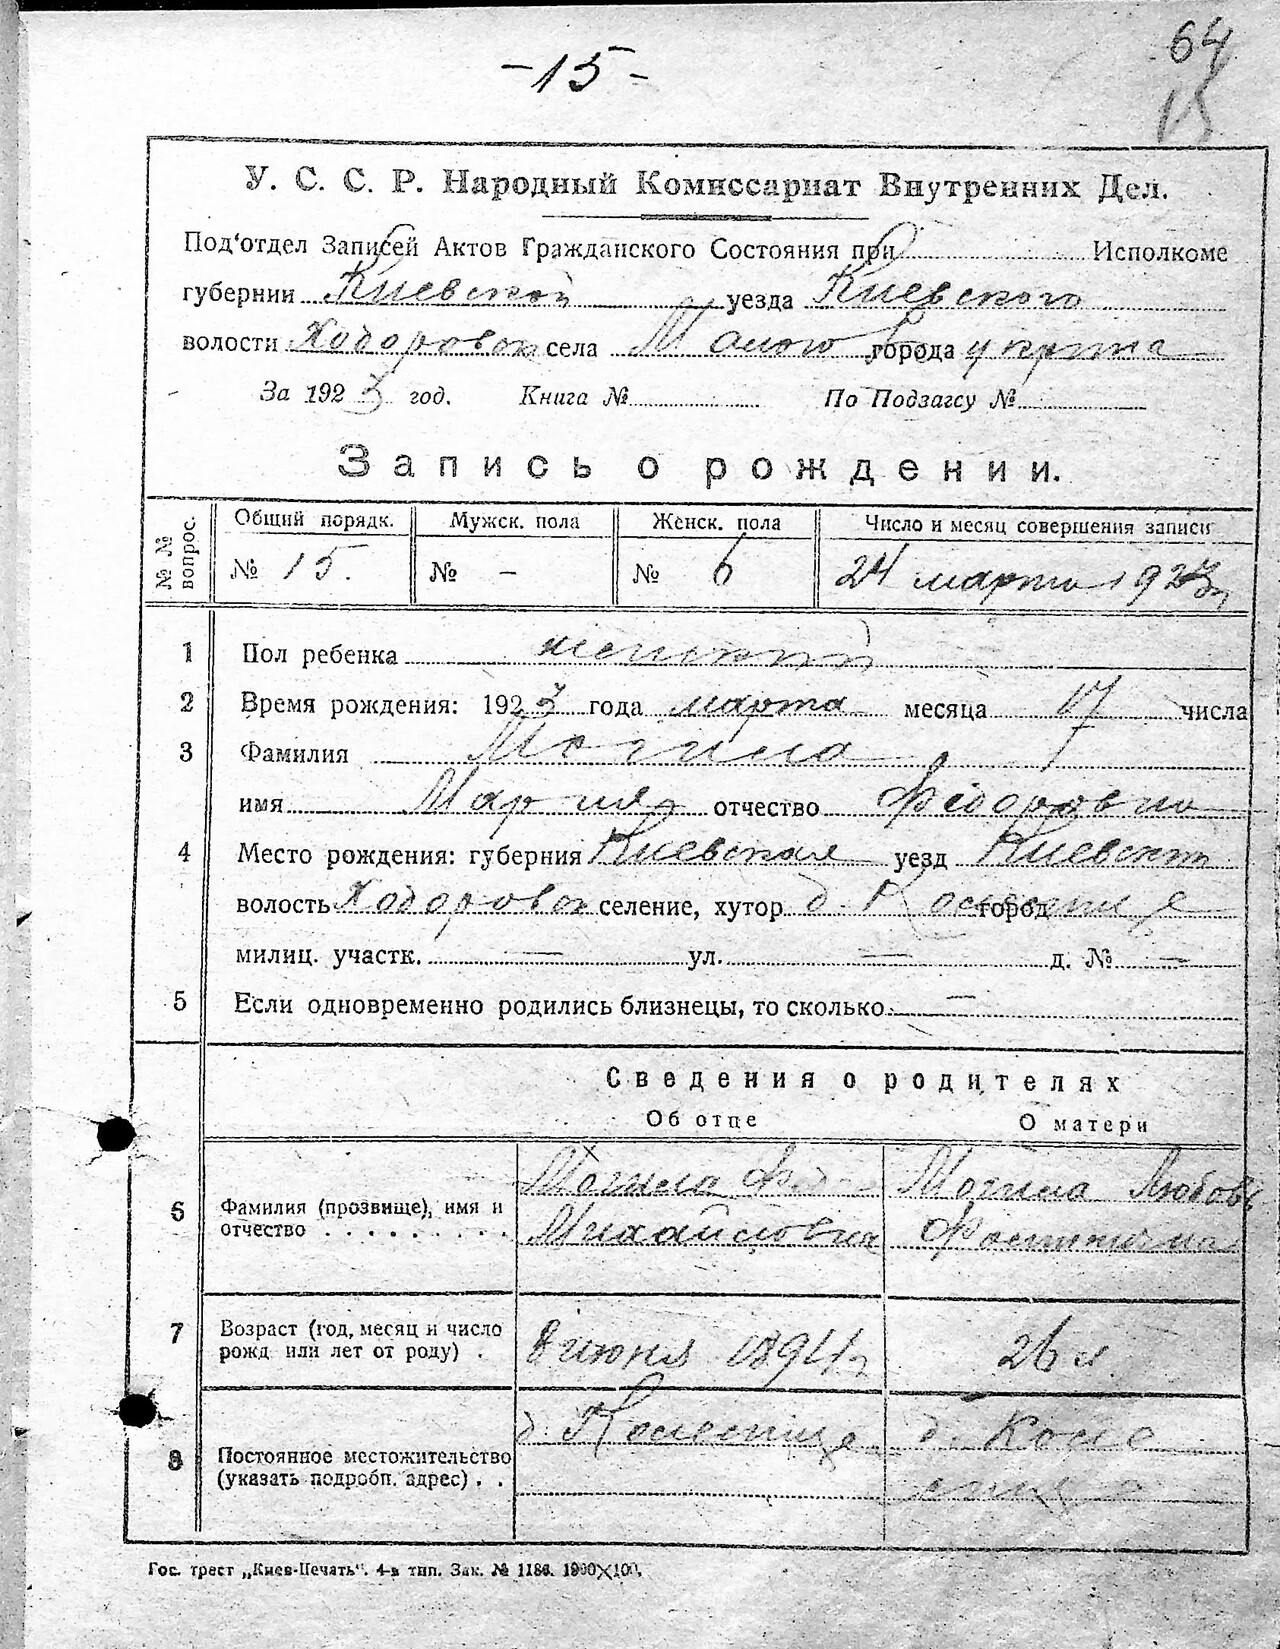 -15-
64
15
У. С. С. Р. Народный Комиссариат Внутренних Дел.
Под'отдел Записей Актов Гражданского Состояния при Исполкоме
губернии Киевской уезда Киевского
волости Ходоровск села города
За 1923 год. Книга № По Подзагсу №
Запись о рождении.
№№ вопрос. Общий порядк. Мужск. пола Женск. пола Число и месяц совершения записи
№ 15. № - № 6 24 марта 1923 г
1 Пол ребенка женский
2 Время рождения: 1923 года марта месяца 17 числа
3 Фамилия Могила
имя Мария отчество Федоровна
4 Место рождения: губерния Киевская уезд Киевский
волость селение, хутор д. город
милиц. участк. — ул. — д. № —
5 Если одновременно родились близнецы, то сколько —
Сведения о родителях
Об отце О матери
6 Фамилия (прозвище), имя и отчество Могила Могила Любовь
7 Возраст (год, месяц и число рожд или лет от роду) . 8 июня 1894 г 26 л
8 Постоянное местожительство (указать подробн. адрес) . . д. д.
Гос. трест „Киев-Печать". 4-я тип. Зак. № 1186. 1900×100.